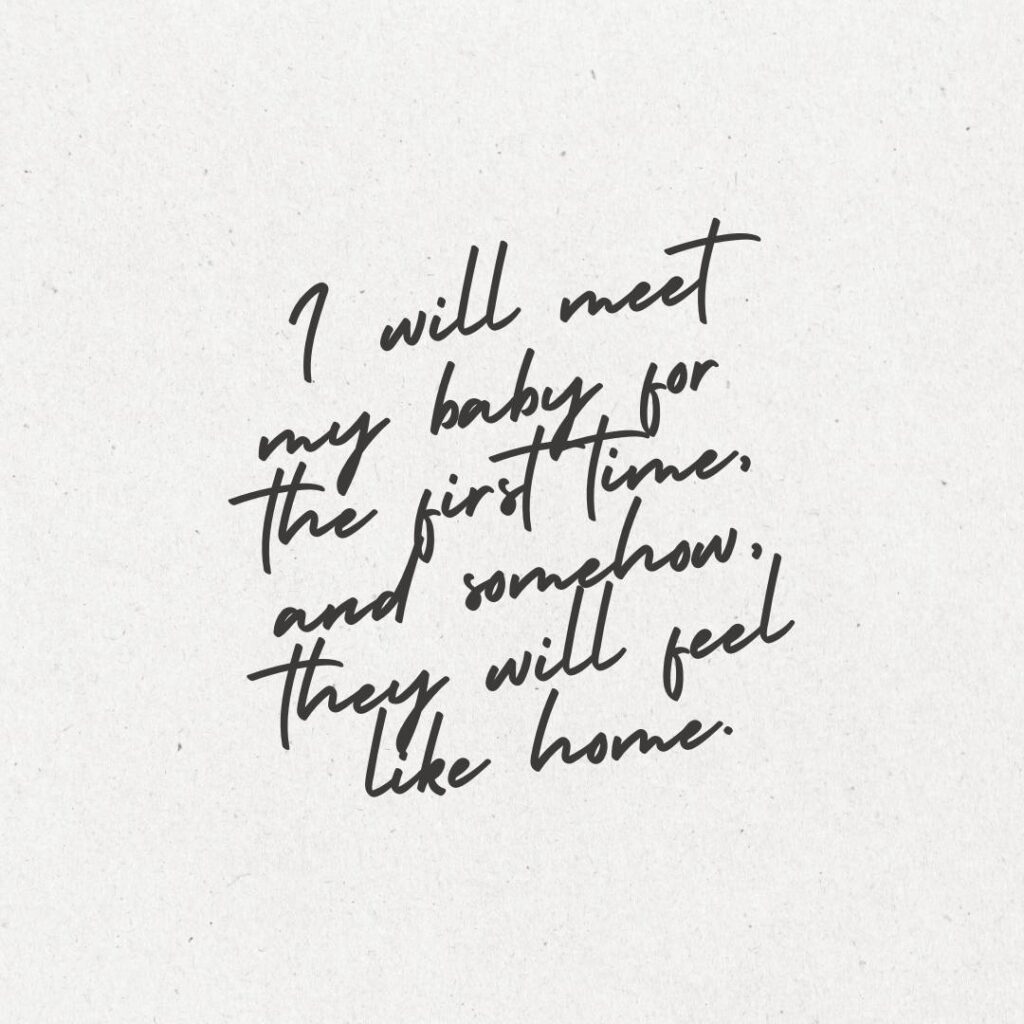 I will meet
my baby for
the first time,
and somehow,
they will feel
like home.